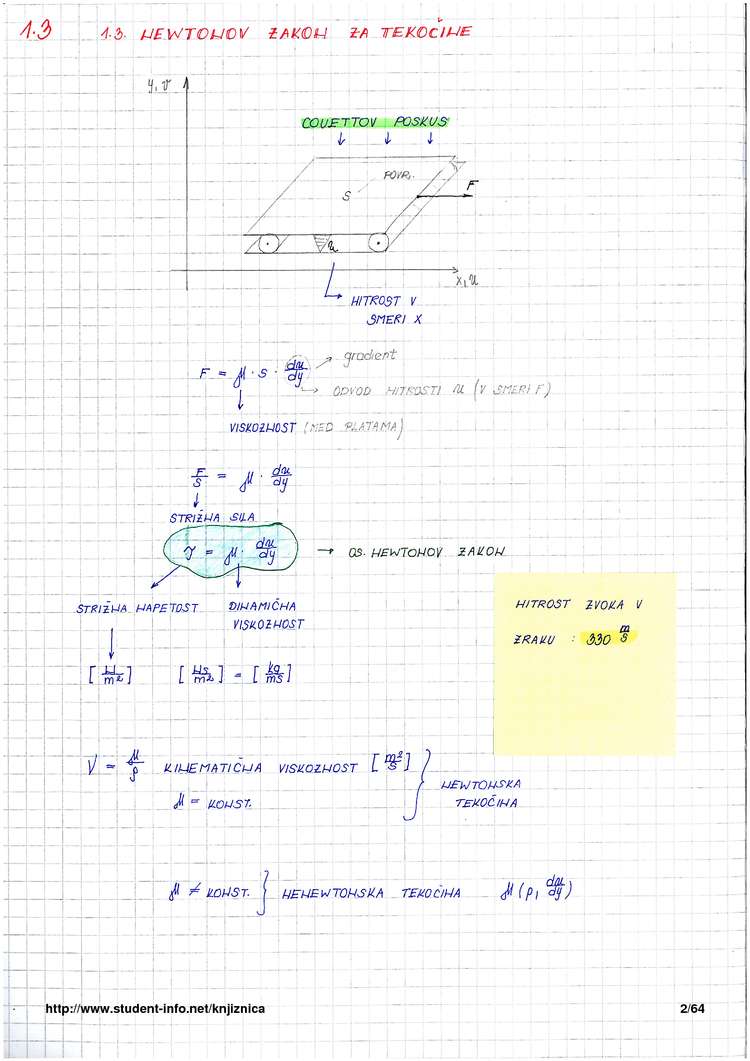 1.3 1.3. NEWTONOV ZAKON ZA TEKOČINE
y, v
COUETTOV POSKUS
POVR.
S
F
u
x, u
HITROST V
SMERI X
F = μ · S · du/dy
gradient
ODVOD HITROSTI u (V SMERI F)
VISKOZNOST (MED PLATAMA)
F/S = μ · du/dy
STRIŽNA SILA
τ = μ · du/dy → OS. NEWTONOV ZAKON
STRIŽNA NAPETOST DINAMIČNA
VISKOZNOST
[N/m²] [Ns/m²] = [kg/ms]
HITROST ZVOKA V
ZRAKU : 330 m/s
ν = μ/ρ KINEMATIČNA VISKOZNOST [m²/s]
μ = KONST.
NEWTONSKA
TEKOČINA
μ ≠ KONST. } NENEWTONSKA TEKOČINA μ(p, du/dy)
http://www.student-info.net/knjiznica 2/64